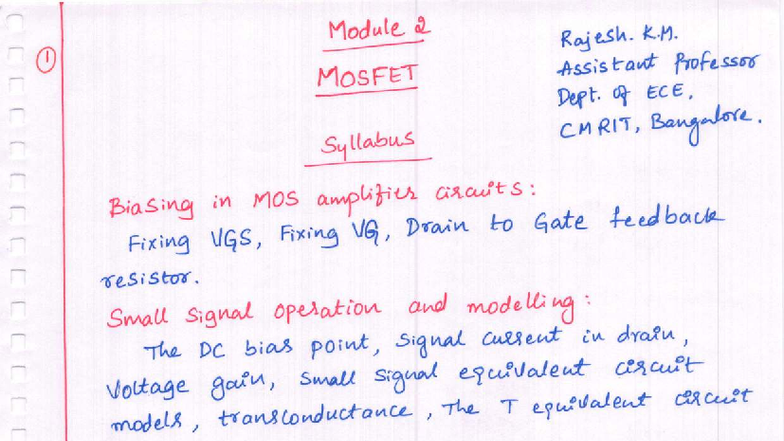 Module 2
Rajesh. K.M.
1
MOSFET
Assistant Professor
Dept. of ECE,
CMRIT, Bangalore.
Syllabus
Biasing in MOS amplifier circuits:
Fixing VGS, Fixing VG, Drain to Gate feedback
resistor.
Small Signal operation and modelling:
The DC bias point, Signal current in drain,
Voltage gain, Small Signal equivalent circuit
models, transconductance, The T equivalent circuit